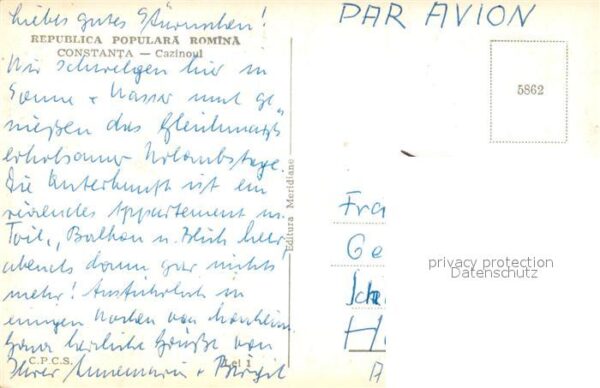 Liebes gutes Stürmchen!
REPUBLICA POPULARĂ ROMÎNĂ
CONSTANŢA — Cazinoul
Wir schwelgen hier in
Sonne + Wasser und ge„
nießen das Gleichmaß
erholsamer Urlaubstage.
Die Unterkunft ist ein
reizendes Appartement m.
Toil., Balkon u. Blick
abends dann gar nichts
mehr! Ausführlich in
einigen Wochen von
Ganz herzliche Grüße von
Ihrer Annemarie + Birgit
C.P.C.S.
Lei 1
Editura Meridiane
PAR AVION
5862
Fra
Ge
H
A
privacy protection
Datenschutz